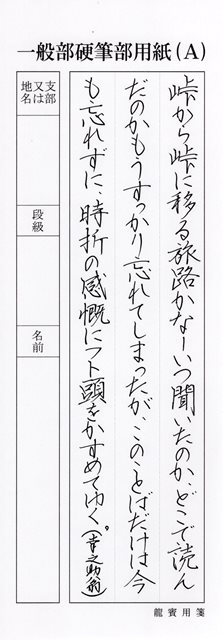 一般部硬筆部用紙(A)
峠から峠に移る旅路かなーいつ聞いたのか、どこで読ん
だのかもうすっかり忘れてしまったが、このことばだけは今
も忘れずに、時折の感慨にフト頭をかすめてゆく。(幸之助翁)
支部
又は
地名
段級
名前
龍賓用箋